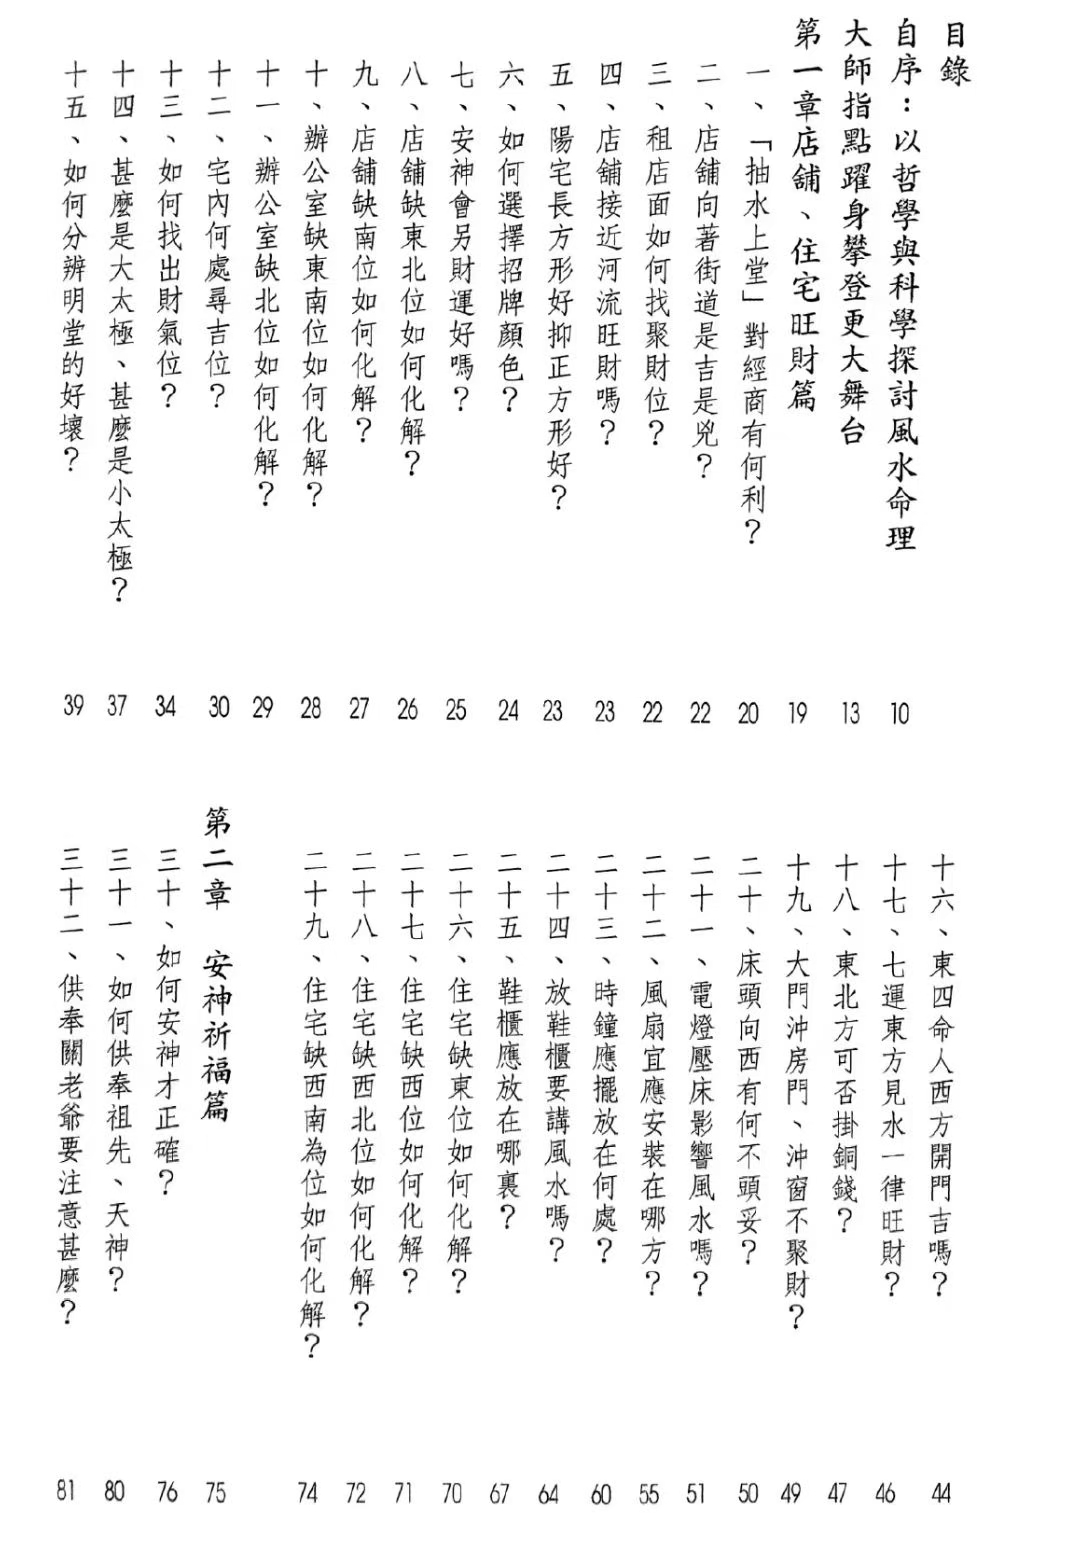 目錄
自序：以哲學與科學探討風水命理 10
大師指點躍身攀登更大舞台 13
第一章店舖、住宅旺財篇 19
一、「抽水上堂」對經商有何利？ 20
二、店舖向著街道是吉是兇？ 22
三、租店面如何找聚財位？ 22
四、店舖接近河流旺財嗎？ 23
五、陽宅長方形好抑正方形好？ 23
六、如何選擇招牌顏色？ 24
七、安神會另財運好嗎？ 25
八、店舖缺東北位如何化解？ 26
九、店舖缺南位如何化解？ 27
十、辦公室缺東南位如何化解？ 28
十一、辦公室缺北位如何化解？ 29
十二、宅內何處尋吉位？ 30
十三、如何找出財氣位？ 34
十四、甚麼是大太極、甚麼是小太極？ 37
十五、如何分辨明堂的好壞？ 39
十六、東四命人西方開門吉嗎？ 44
十七、七運東方見水一律旺財？ 46
十八、東北方可否掛銅錢？ 47
十九、大門沖房門、沖窗不聚財？ 49
二十、床頭向西有何不頭妥？ 50
二十一、電燈壓床影響風水嗎？ 51
二十二、風扇宜應安裝在哪方？ 55
二十三、時鐘應擺放在何處？ 60
二十四、放鞋櫃要講風水嗎？ 64
二十五、鞋櫃應放在哪裏？ 67
二十六、住宅缺東位如何化解？ 70
二十七、住宅缺西位如何化解？ 71
二十八、住宅缺西北位如何化解？ 72
二十九、住宅缺西南為位如何化解？ 74
第二章　安神祈福篇 75
三十、如何安神才正確？ 76
三十一、如何供奉祖先、天神？ 80
三十二、供奉關老爺要注意甚麼？ 81